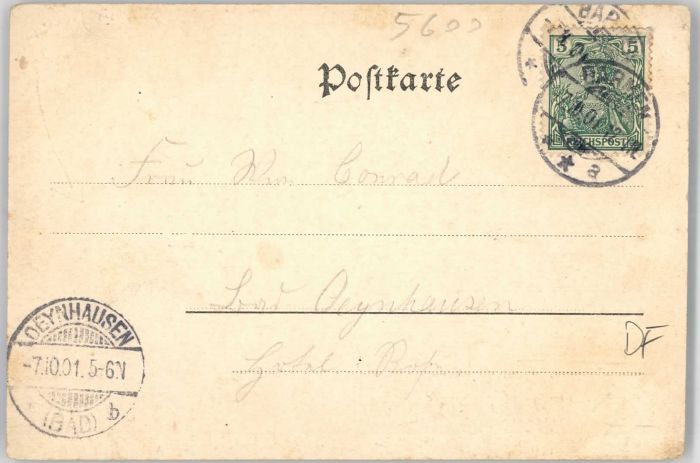 5600
Postkarte
5 5
REICHSPOST
BARMEN
a
Frau Wwe Conrad
Bad Oeynhausen
Hotel
DF
OEYNHAUSEN
-7.10.01. 5-6N
(BAD) b